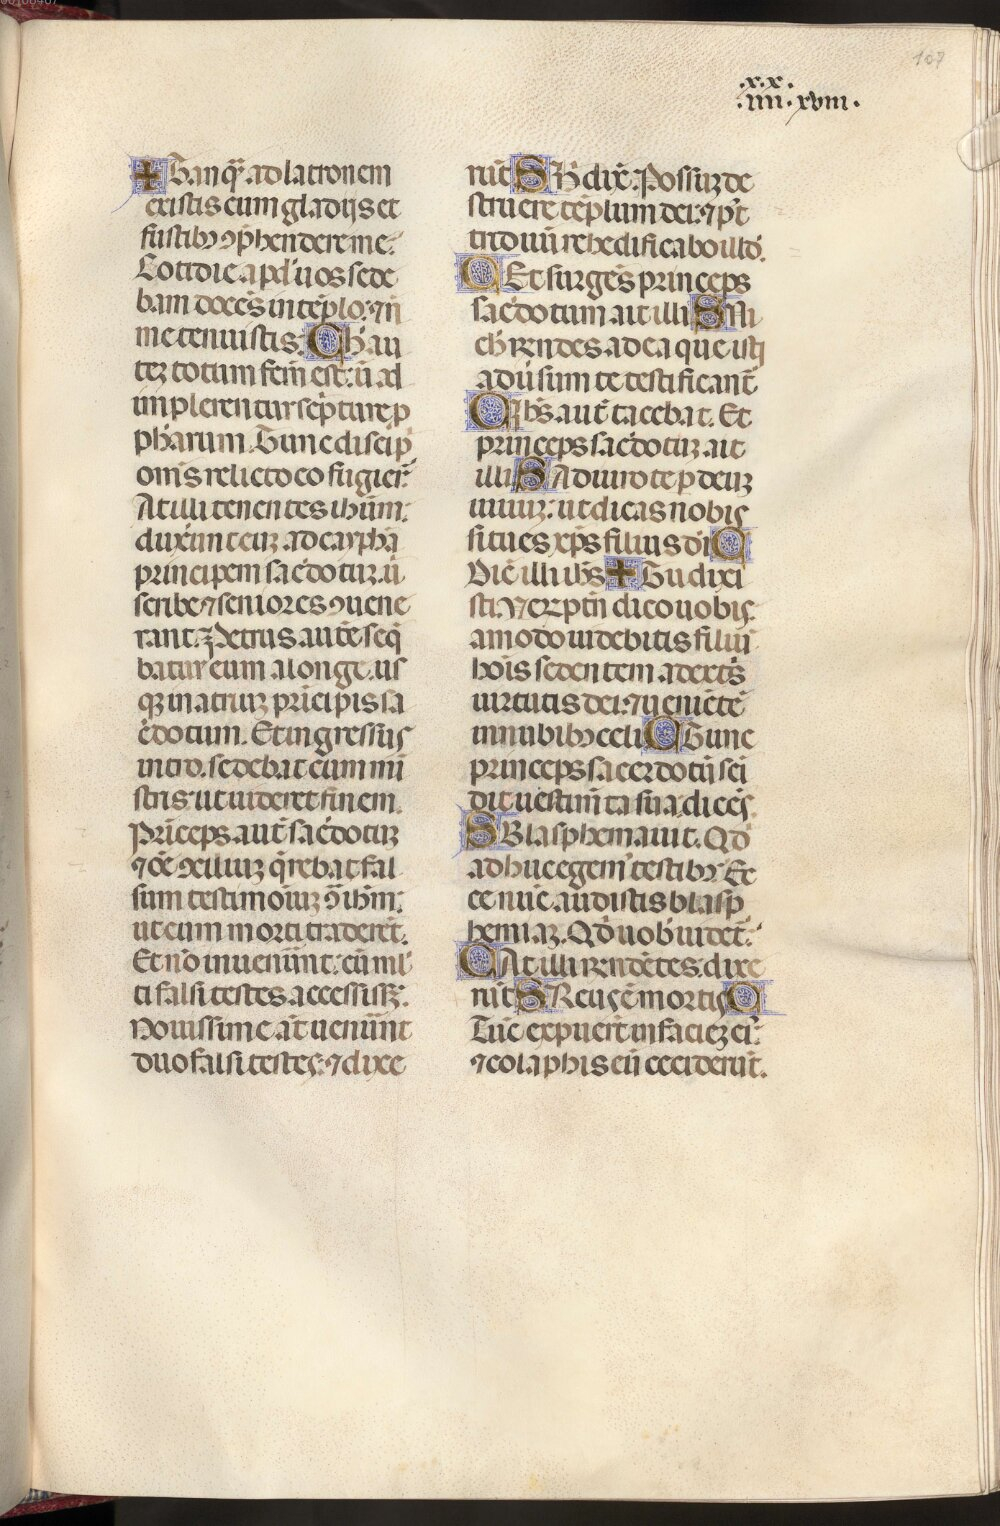 107
.x.x.
.iiii.xviii.
✚ Tanq̃ ad latronem
existis cum gladijs et
fustibꝫ ꝯp̃hendere me.
Cotidie apd̛ uos sede
bam docẽs in tẽplo: ⁊ nõ
me tenuistis. C H̃ au
teꝫ totum fcm̃ est: ũ ad
implerentur sc̃pture ꝓ
phãrum. Tunc discip̃
om̃s relicto eo fugier̃t.
At illi tenentes ihũm:
duxẽunt euꝫ ad caypha
principem sac̃dotuꝫ. ũ
scribe ⁊ seniores ꝯuene
rant. Petrus autẽ seq̃
batur eum a longe. us
qꝫ in atriuꝫ prĩcipis sa
c̃dotum. Et ingressus
intro. sedebat cum mĩ
stris: ut uideret finem.
Prĩceps aut̃ sac̃dotuꝫ
⁊ oẽ ꝯciliuꝫ q̃rebat fal
sum testimoiuꝫ ꝯ̃ ihm̃:
ut eum morti traderẽt.
Et nõ inuenũnt: cũ ml̛
ti falsi testes accessisꝫ.
Nouissime at̃ uenũnt
duo falsi testes: ⁊ dixe
rũt S H̃ dix̃. Possuꝫ de
struere tẽplum dei: ⁊ p̃t
triduũ rehedificabo illd̛.
C Et surgẽs princeps
sac̃dotum ait illi S Ni
ch̃ rñdes ad ea que isti
adũsum te testificant̃
C Ihs̃ aut̃ tacebat. Et
princeps sac̃dotuꝫ ait
illi S Adiuro te ꝑ deuꝫ
uiuuꝫ: ut dicas nobis
si tu es xp̃s filius dĩ C
Dic̃ illi ihs̃ ✚ Tu dixi
sti. Ueꝝptñ dico uobis:
amodo uidebitis filiũ
hoĩs sedentem a dextᷓs
uirtutis dei: ⁊ ueniẽtẽ
in nubibꝫ celi C Tunc
princeps sacerdotũ sci
dit uestim̃ta sua dicẽs.
S Blasphemauit. Qd̛
adhuc egem̃ testibꝫ? Ec
ce nũc audistis blasp
hemiaꝫ. Qd̛ uob̃ uidet̃.
C At illi rñdẽtes: dixe
rũt S Reus ẽ mortis C
Tũc expuer̃t in facieꝫ ei̛:
⁊ colaphis eũ ceciderũt.